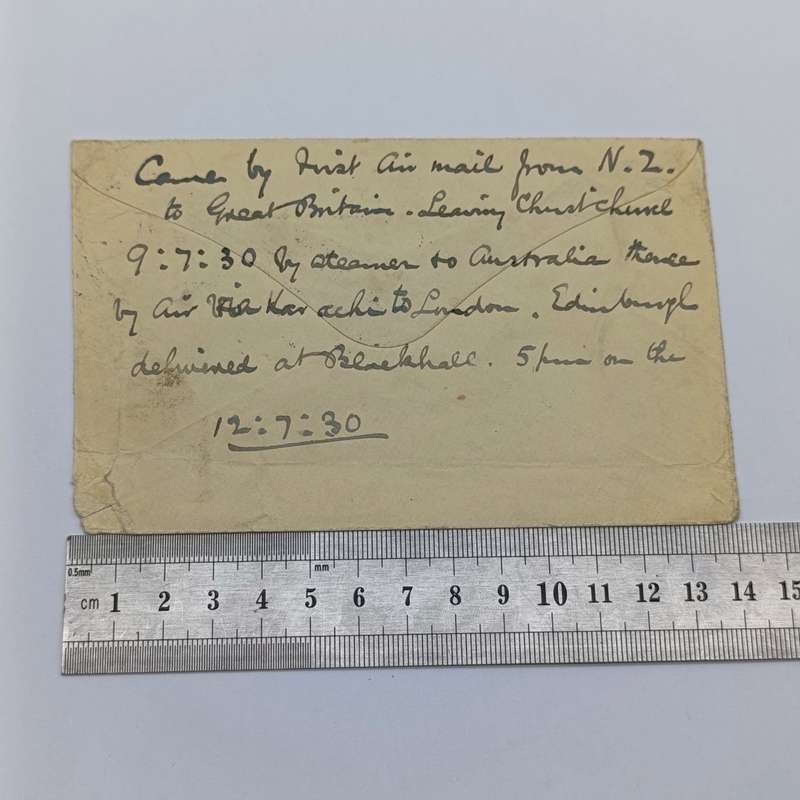 Came by First Air mail from N.Z.
to Great Britain. Leaving Christchurch
9:7:30 by steamer to Australia thence
by Air Via Karachi to London. Edinburgh
delivered at Blackhall. 5 pm on the
12:7:30
0.5mm mm
cm 1 2 3 4 5 6 7 8 9 10 11 12 13 14 15